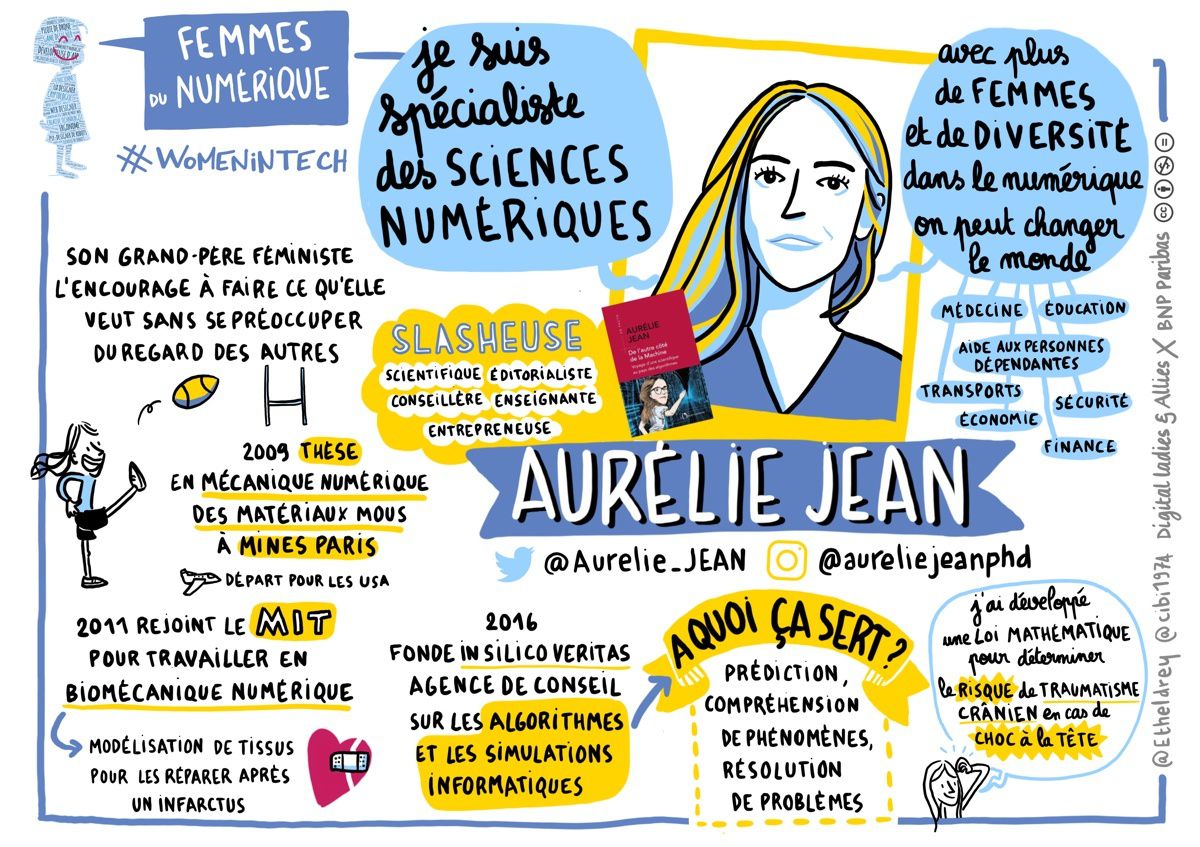 FEMMES
DU NUMÉRIQUE
#WOMENINTECH
je suis
spécialiste
des SCIENCES
NUMÉRIQUES
avec plus
de FEMMES
et de DIVERSITÉ
dans le numérique
on peut changer
le monde
MÉDECINE
ÉDUCATION
AIDE AUX PERSONNES
DÉPENDANTES
TRANSPORTS
SÉCURITÉ
ÉCONOMIE
FINANCE
SON GRAND-PÈRE FÉMINISTE
L'ENCOURAGE À FAIRE CE QU'ELLE
VEUT SANS SE PRÉOCCUPER
DU REGARD DES AUTRES
SLASHEUSE
SCIENTIFIQUE ÉDITORIALISTE
CONSEILLÈRE ENSEIGNANTE
ENTREPRENEUSE
AURÉLIE
JEAN
De l'autre côté
de la Machine
Voyage d'une scientifique
au pays des algorithmes
AURÉLIE JEAN
@Aurelie_JEAN
@aureliejeanphd
2009 THÈSE
EN MÉCANIQUE NUMÉRIQUE
DES MATÉRIAUX MOUS
À MINES PARIS
DÉPART POUR LES USA
2011 REJOINT LE MIT
POUR TRAVAILLER EN
BIOMÉCANIQUE NUMÉRIQUE
MODÉLISATION DE TISSUS
POUR LES RÉPARER APRÈS
UN INFARCTUS
2016
FONDE IN SILICO VERITAS
AGENCE DE CONSEIL
SUR LES ALGORITHMES
ET LES SIMULATIONS
INFORMATIQUES
A QUOI ÇA SERT?
PRÉDICTION,
COMPRÉHENSION
DE PHÉNOMÈNES,
RÉSOLUTION
DE PROBLÈMES
j'ai développé
une Loi MATHÉMATIQUE
pour déterminer
le RISQUE de TRAUMATISME
CRÂNIEN en cas de
CHOC à la TÊTE
@Etheldrey @cibi1974 Digital ladies & Allies X BNP Paribas